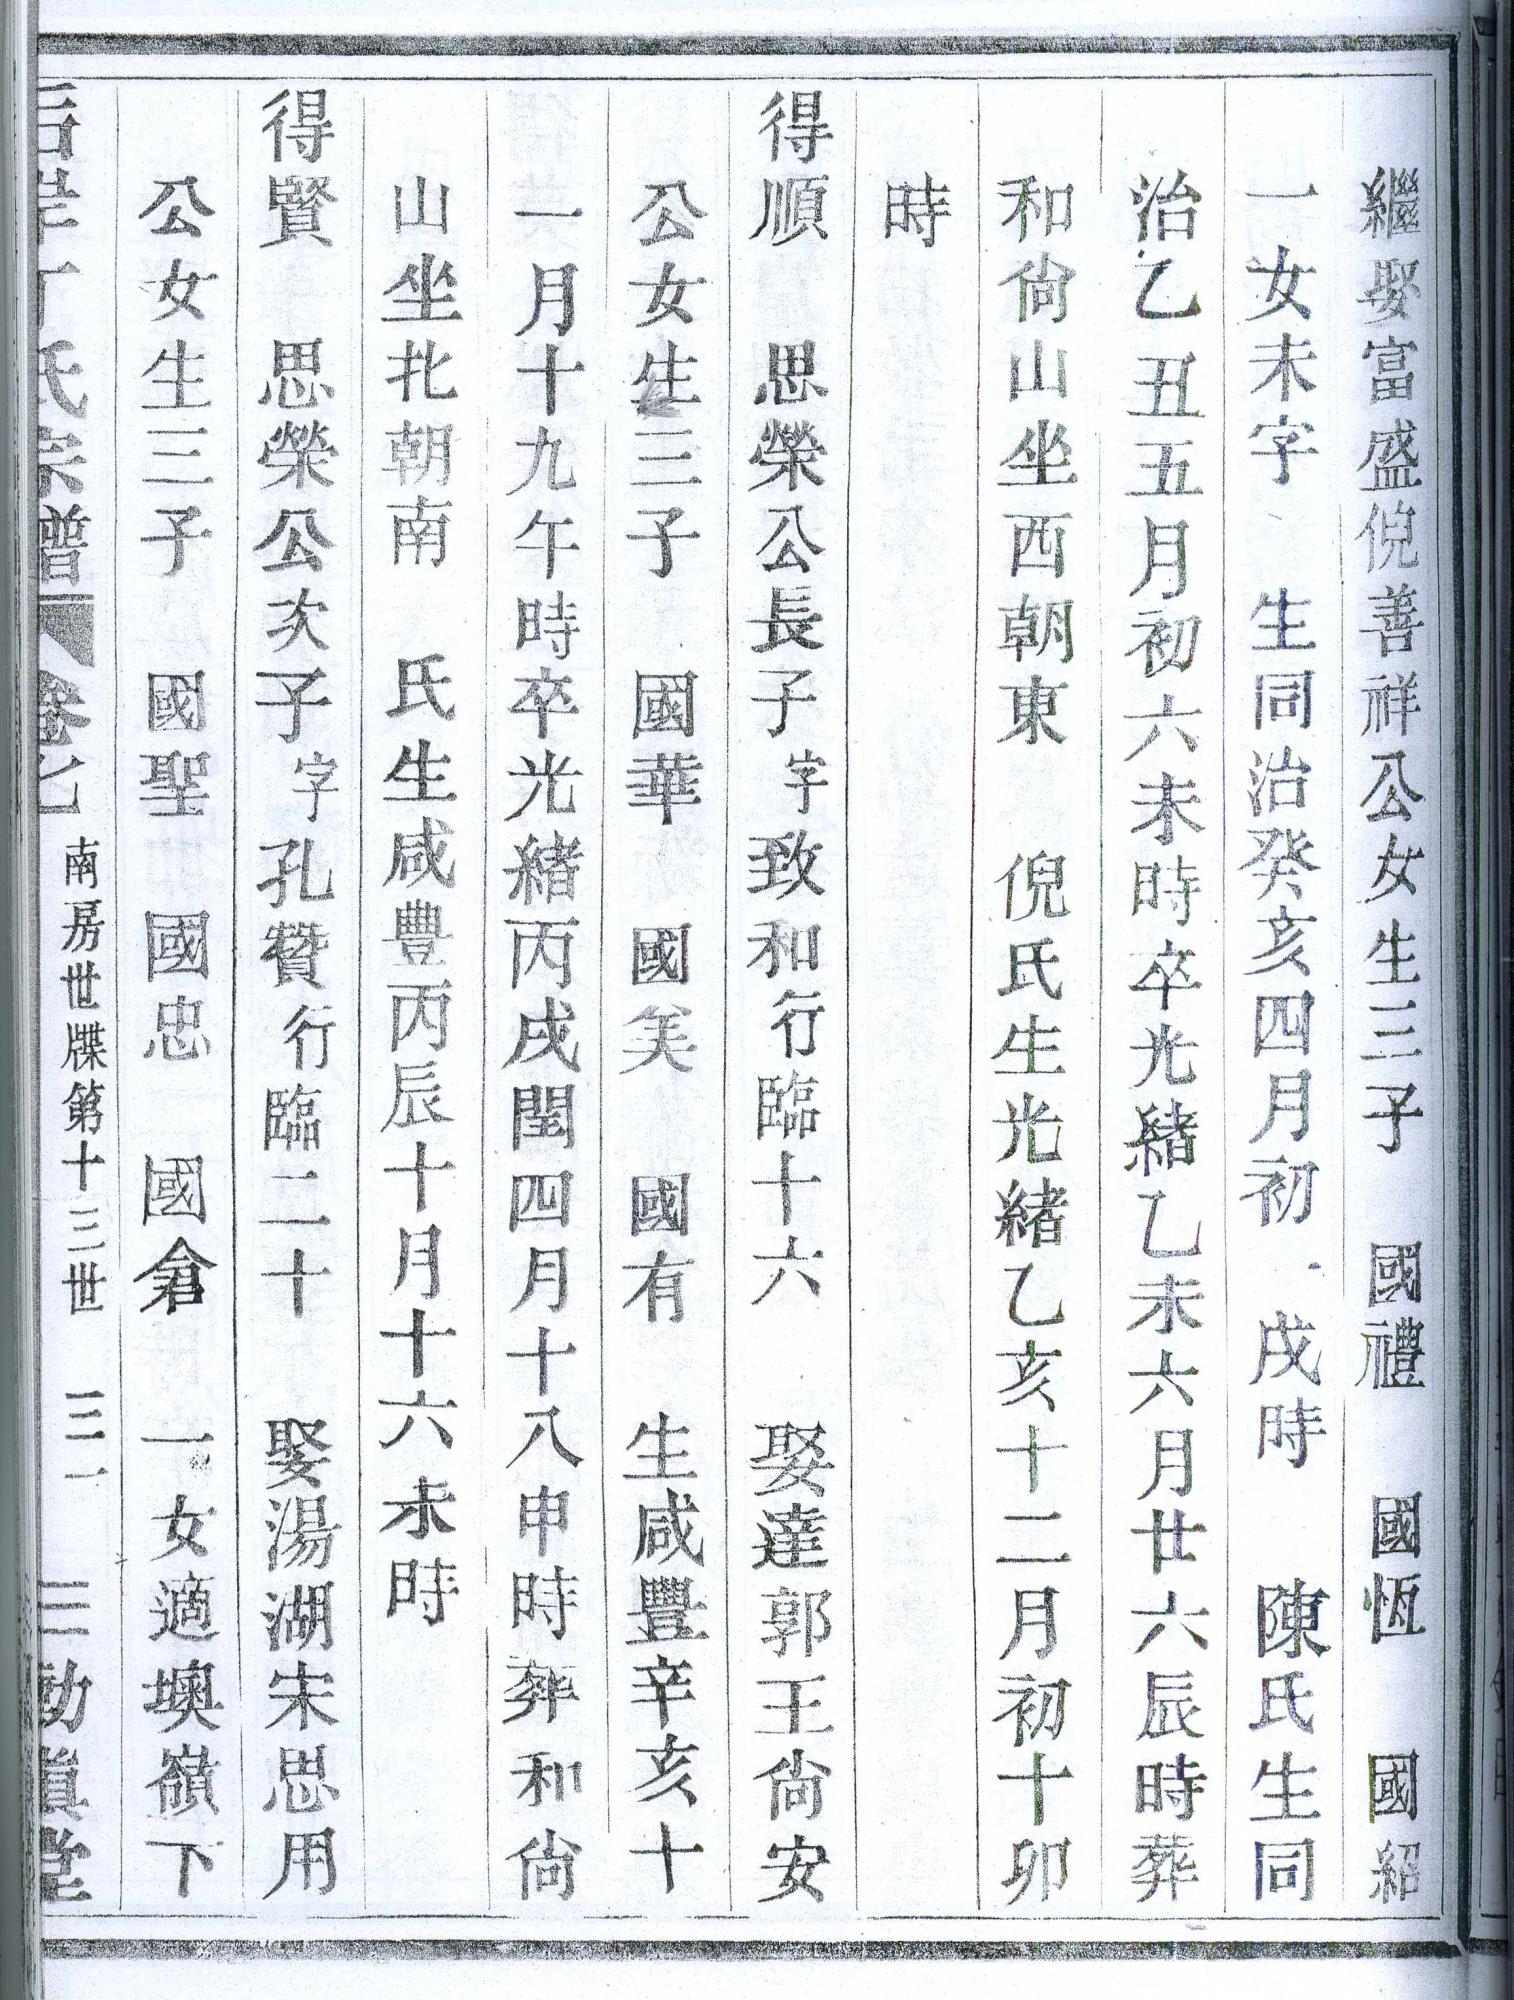 繼娶富盛倪善祥公女生三子 國禮 國恆 國紹
一女未字 生同治癸亥四月初 戌時 陳氏生同
治乙丑五月初六未時卒光緒乙未六月廿六辰時葬
和尙山坐西朝東 倪氏生光緒乙亥十二月初十卯
時
得順 思榮公長子字致和行臨十六 娶達郭王尙安
公女生三子 國華 國美 國有 生咸豐辛亥十
一月十九午時卒光緒丙戌閏四月十八申時葬和尙
山坐北朝南 氏生咸豐丙辰十月十六未時
得賢 思榮公次子字孔贊行臨二十 娶湯湖宋思用
公女生三子 國聖 國忠 國倉 一女適墺嶺下
丁氏宗譜 卷七 南房世牒第十三世 三一